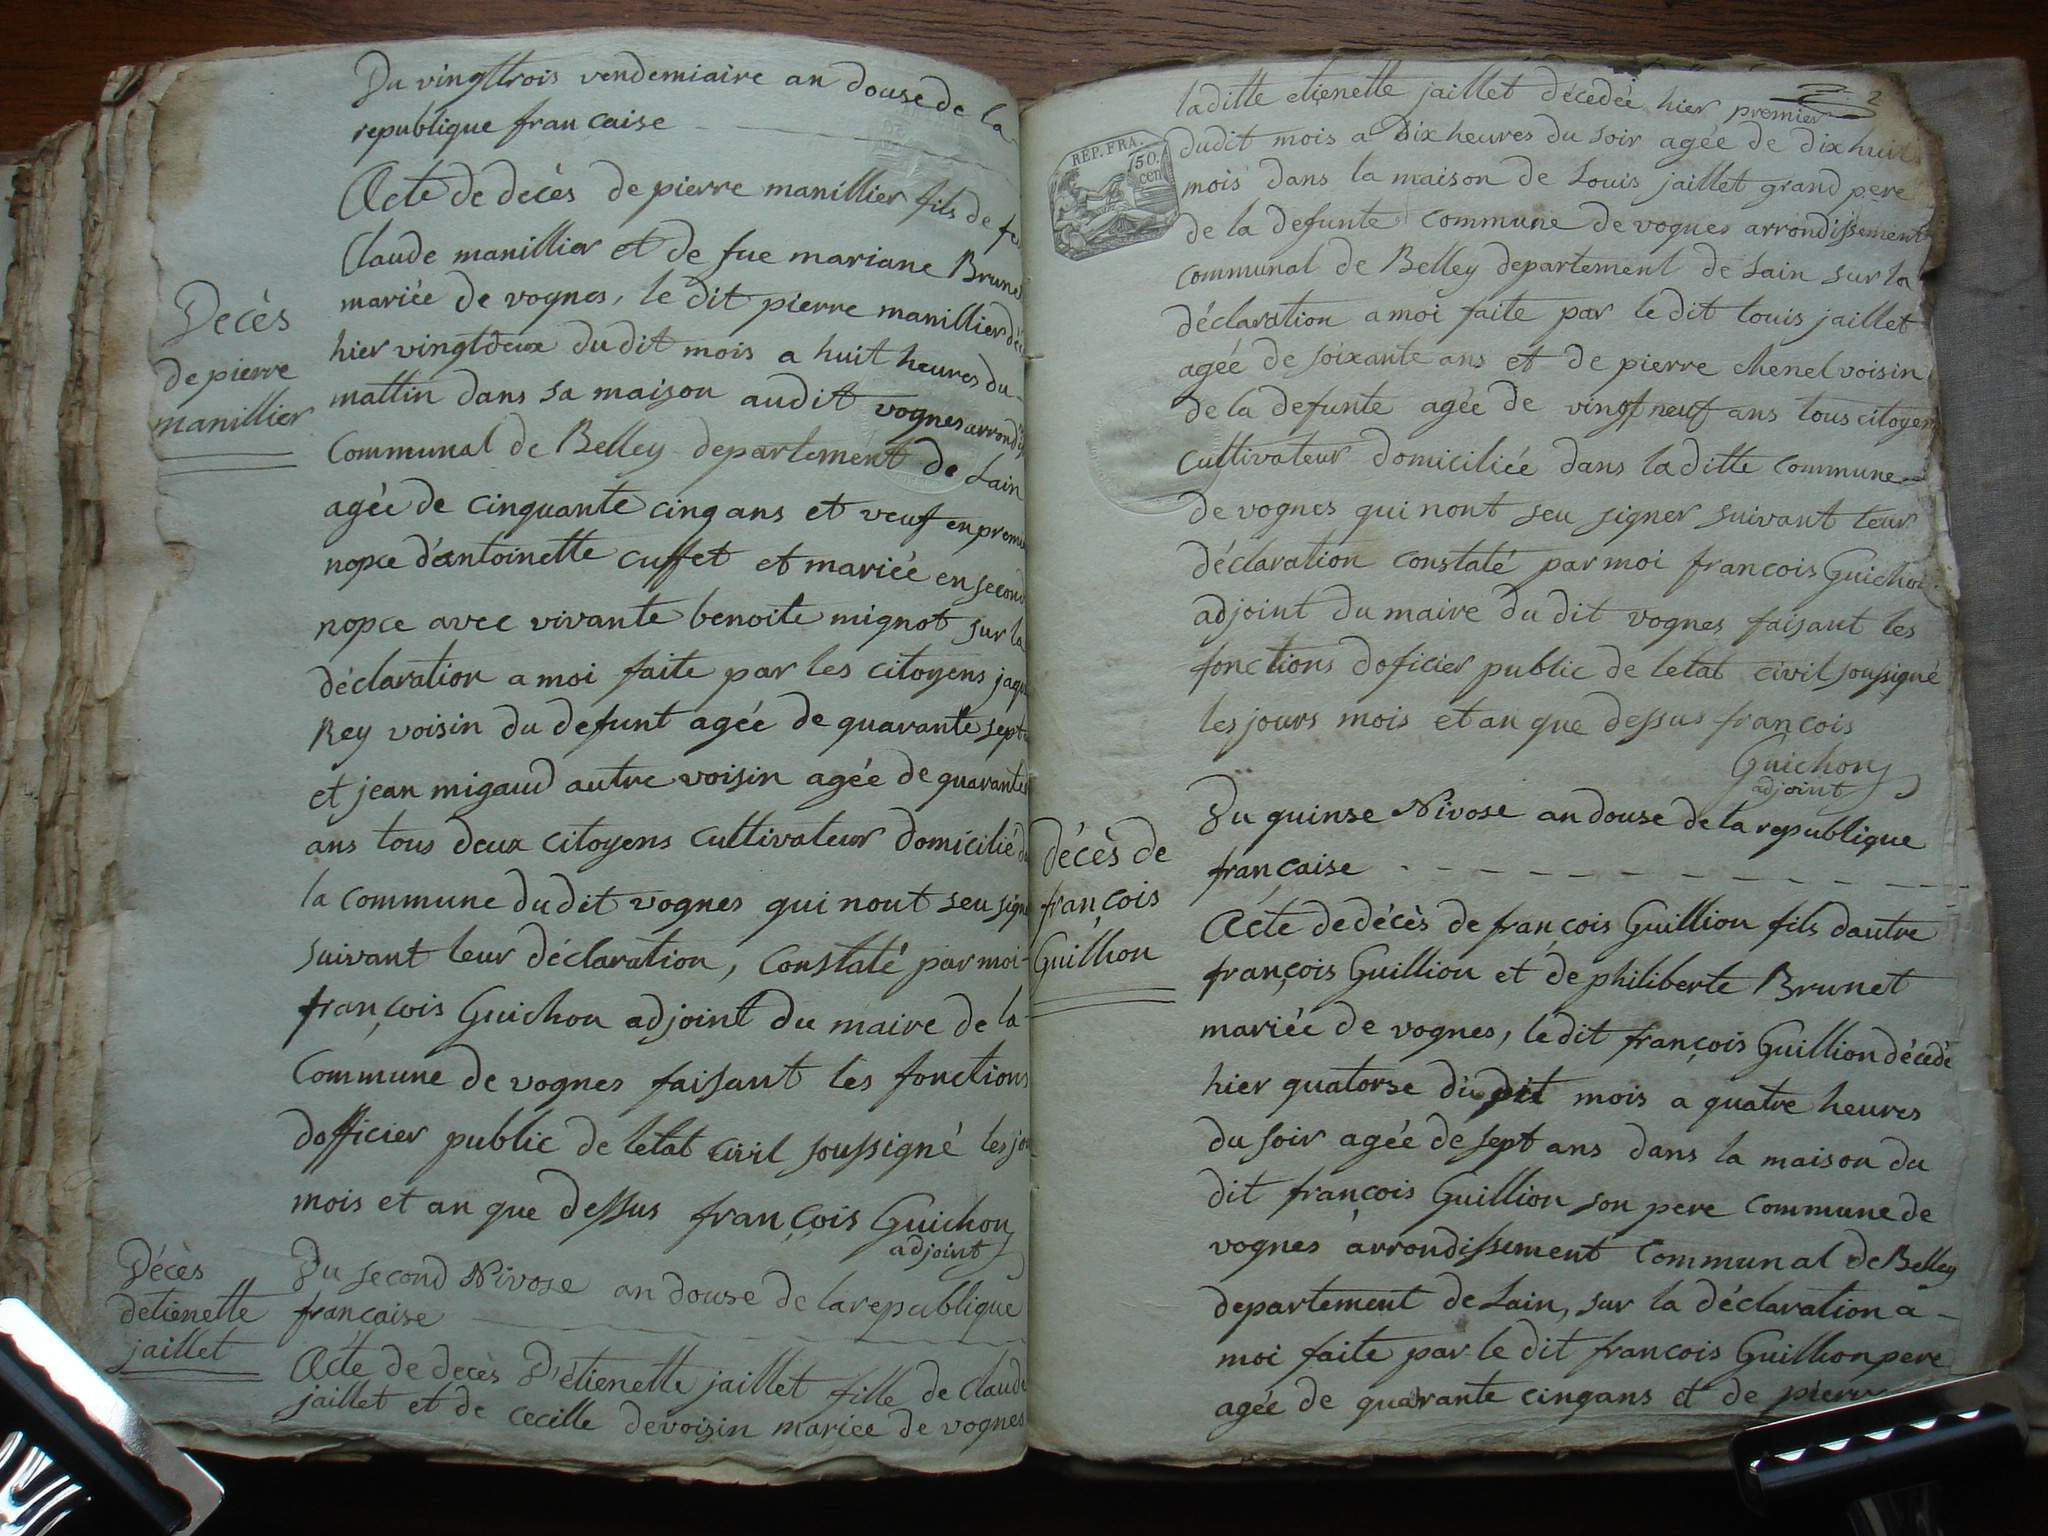 Du vingttrois vendemiaire an douse de la
republique francaise
Acte de decès de pierre manillier fils de feu
Claude manillier et de fue mariane Brunet
mariée de vognes, le dit pierre manillier
hier vingtdeux dudit mois a huit heures du
mattin dans sa maison audit vognes
Communal de Belley departement de Lain
agée de cinquante cinq ans et veuf en
nopce d'antoinette cuffet et mariée en
nopce avec vivante benoite mignot sur la
déclaration a moi faite par les citoyens
Rey voisin du defunt agée de quarante sept
et jean migaud autre voisin agée de quarante
ans tous deux citoyens cultivateur domicilié
la commune dudit vognes qui nont seu
suivant leur déclaration, Constaté par moi
françois Guichon adjoint du maire de la
Commune de vognes faisant les fonctions
dofficier public de letat civil soussigné les
mois et an que dessus françois Guichon
adjoint
Decès
de pierre
manillier
Décès
detienette
jaillet
Du second Nivose an douse de la republique
francaise
Acte de decès D'étienette jaillet fille de claude
jaillet et de cecille devoisin mariee de vognes
2
laditte etienette jaillet décedée hier premier
dudit mois a dix heures du soir agée de dixhuit
mois dans la maison de Louis jaillet grand pere
de la defunte commune de vognes arrondissement
communal de Belley departement de Lain sur la
déclaration a moi faite par le dit Louis jaillet
agée de soixante ans et de pierre chenel voisin
de la defunte agée de vingt neuf ans tous citoyens
cultivateur domiciliée dans laditte commune
de vognes qui nont seu signer suivant leur
déclaration constaté par moi francois Guichon
adjoint du maire du dit vognes faisant les
fonctions doficier public de letat civil soussigné
les jours mois et an que dessus françois
Guichon
adjoint
REP. FRA.
50.
cen
Décès de
françois
Guillion
Du quinse Nivose an douse de la republique
française
Acte de décès de françois Guillion fils dautre
françois Guillion et de philiberte Brunet
mariée de vognes, ledit françois Guillion décedé
hier quatorse du dit mois a quatre heures
du soir agée de sept ans dans la maison du
dit françois Guillion son pere commune de
vognes arrondissement Communal de Belley
departement de Lain, sur la déclaration a
moi faite par le dit francois Guillion pere
agée de quarante cinq ans et de pierre